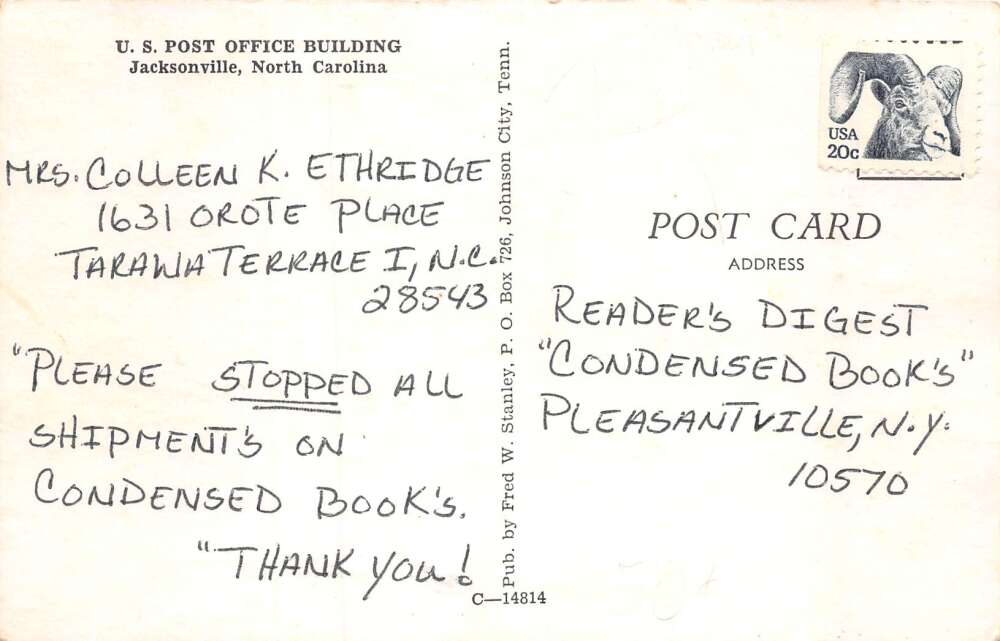 U. S. POST OFFICE BUILDING
Jacksonville, North Carolina
MRS. COLLEEN K. ETHRIDGE
1631 OROTE PLACE
TARAWA TERRACE I, N.C.
28543
"PLEASE STOPPED ALL
SHIPMENT'S ON
CONDENSED BOOK'S.
"THANK YOU!
Pub. by Fred W. Stanley, P. O. Box 726, Johnson City, Tenn.
C—14814
USA
20c
POST CARD
ADDRESS
READER'S DIGEST
"CONDENSED BOOK'S"
PLEASANTVILLE, N.Y.
10570